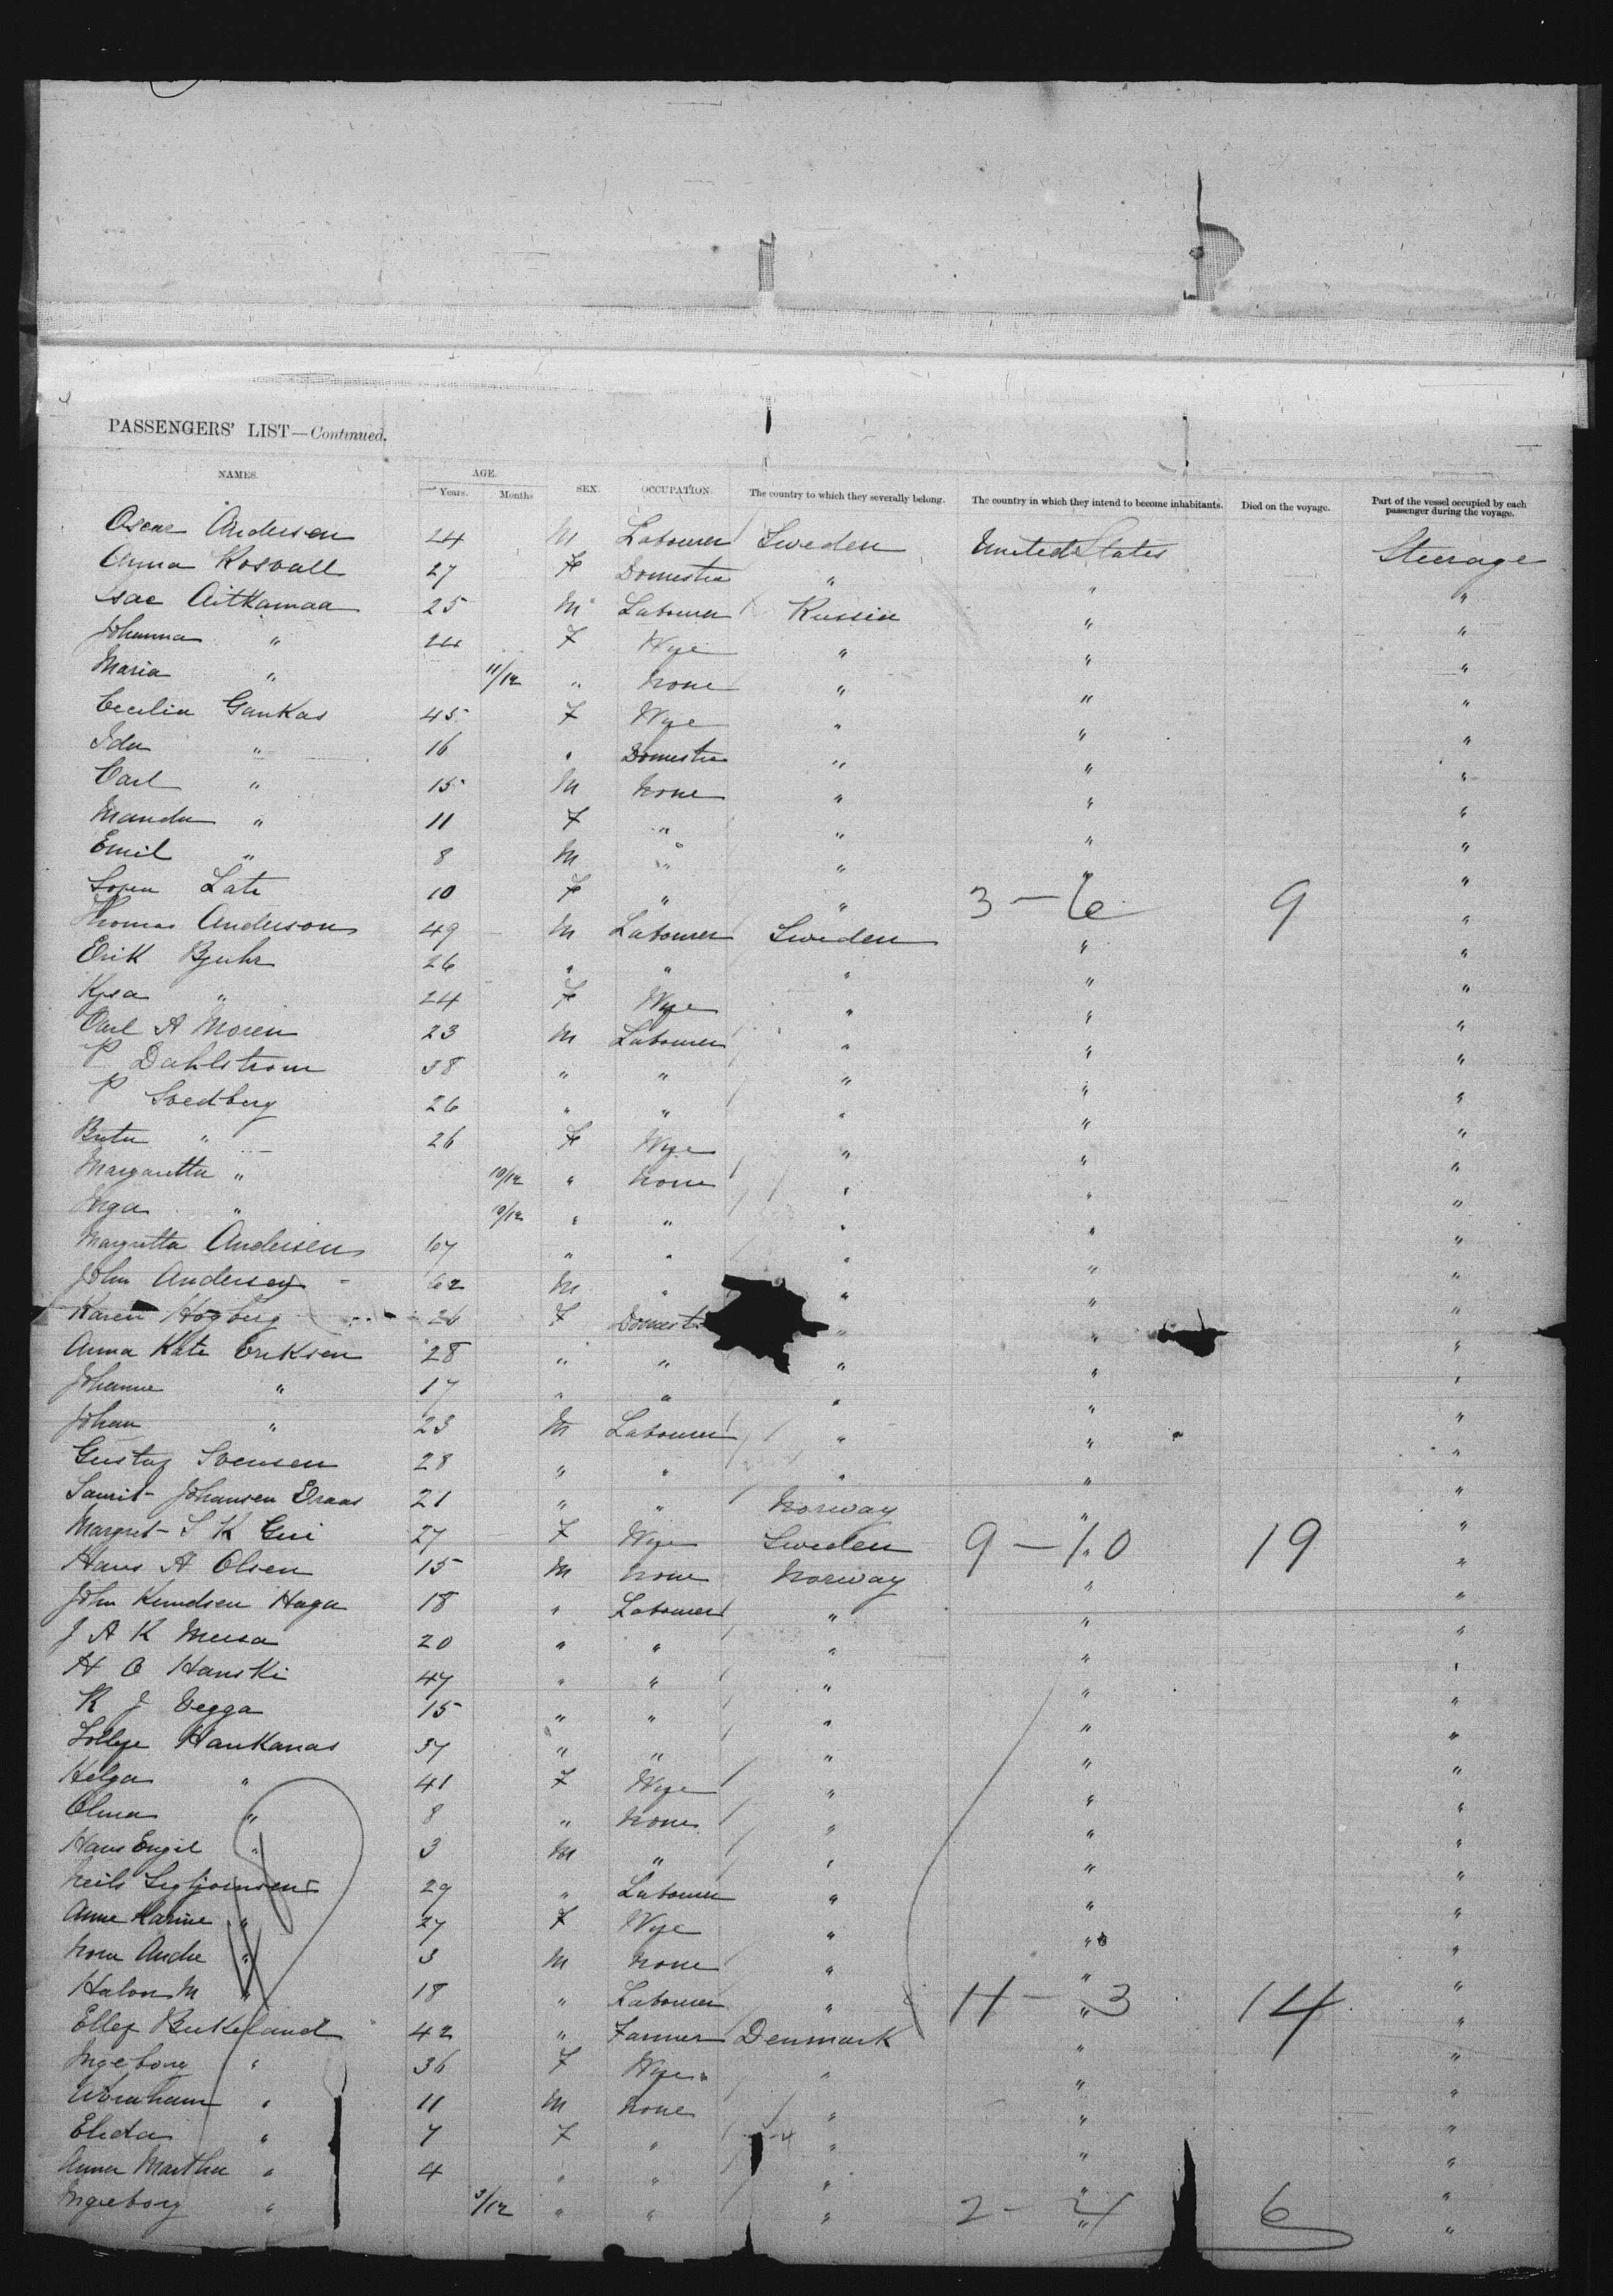 PASSENGERS' LIST—Continued.
NAMES. AGE. SEX. OCCUPATION. The country to which they severally belong. The country in which they intend to become inhabitants. Died on the voyage. Part of the vessel occupied by each passenger during the voyage.
Years. Months
Oscar Andersen 24 M Labourer Sweden United States Steerage
Anna Rosvall 27 F Domestic " " "
Isac Aitkamaa 25 M Labourer Russia " "
Johanna " 24 F Wife " " "
Maria " 11/12 " None " " "
Cecilia Gankas 45 F Wife " " "
Ida " 16 " Domestic " " "
Carl " 15 M None " " "
Manda " 11 F " " " "
Emil " 8 M " " " "
Late 10 F " " " 3 - 6 9 "
Thomas Anderson 49 M Labourer Sweden " "
Erik Bjuhr 26 " " " " "
Kjsa " 24 F Wife " " "
Carl A Moren 23 M Labourer " " "
P Dahlstrom 38 " " " " "
P Svedberg 26 " " " " "
" 26 F Wife " " "
Margaretta " 10/12 " None " " "
Inga " 10/12 " " " " "
Margretta Andersen 67 " " " " "
John Andersen 62 M " " " "
Karen Hogberg 26 F Domest " " "
Anna Kate Eriksen 28 " " " " "
Johanne " 17 " " " " "
Johan " 23 M Labourer " " "
Gustaf Svensen 28 " " " " "
Johansen 21 " " Norway " "
Margret S K 27 F Wife Sweden 9 - 10 19 "
Hans A Olsen 15 M None Norway " "
John Knudsen Haga 18 " Labourer " " "
J A K 20 " " " " "
H O Hanski 47 " " " " "
K J Vegga 15 " " " " "
Haukanas 37 " " " " "
Helga " 41 F Wife " " "
Olina " 8 " None " " "
Hans Engil " 3 M " " " "
Neils 29 " Labourer " " "
Anne Karine " 27 F Wife " " "
Andre " 3 M None " " "
M " 18 " Labourer " 11 - 3 14 "
Ellef Birkeland 42 " Farmer Denmark " "
Ingeborg " 36 F Wife " " "
Abraham " 11 M None " " "
Elida " 7 F " " " "
Anna Martha " 4 " " " " "
Ingeborg " 3/12 " " " 2 - 4 6 "